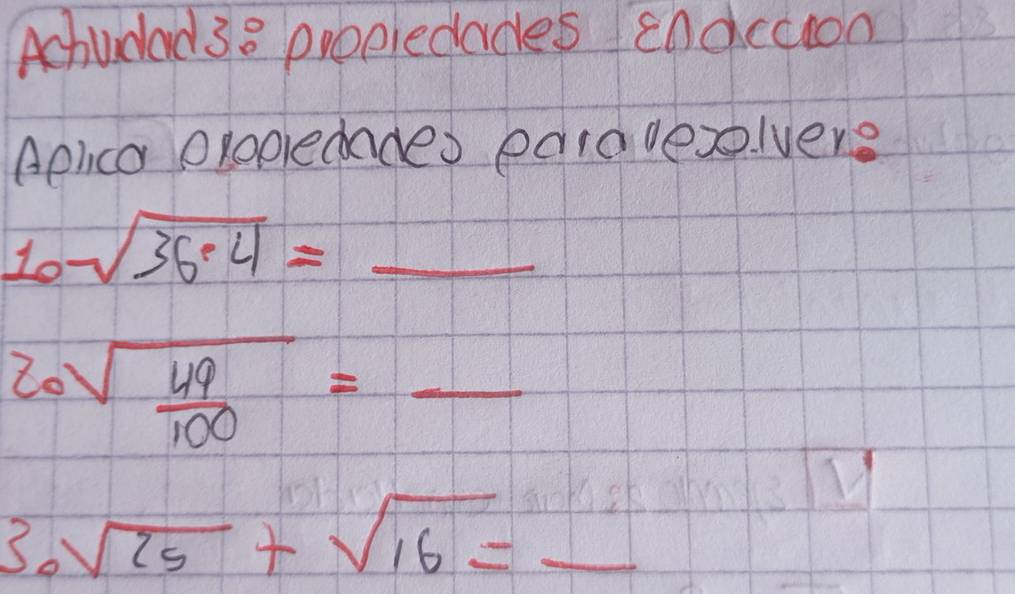 Actividad 3: propiedades En accion
Aplica propiedades para resolver:
1. √36·4 = ____
2. √49/100 = ____
3. √25 + √16 = ____